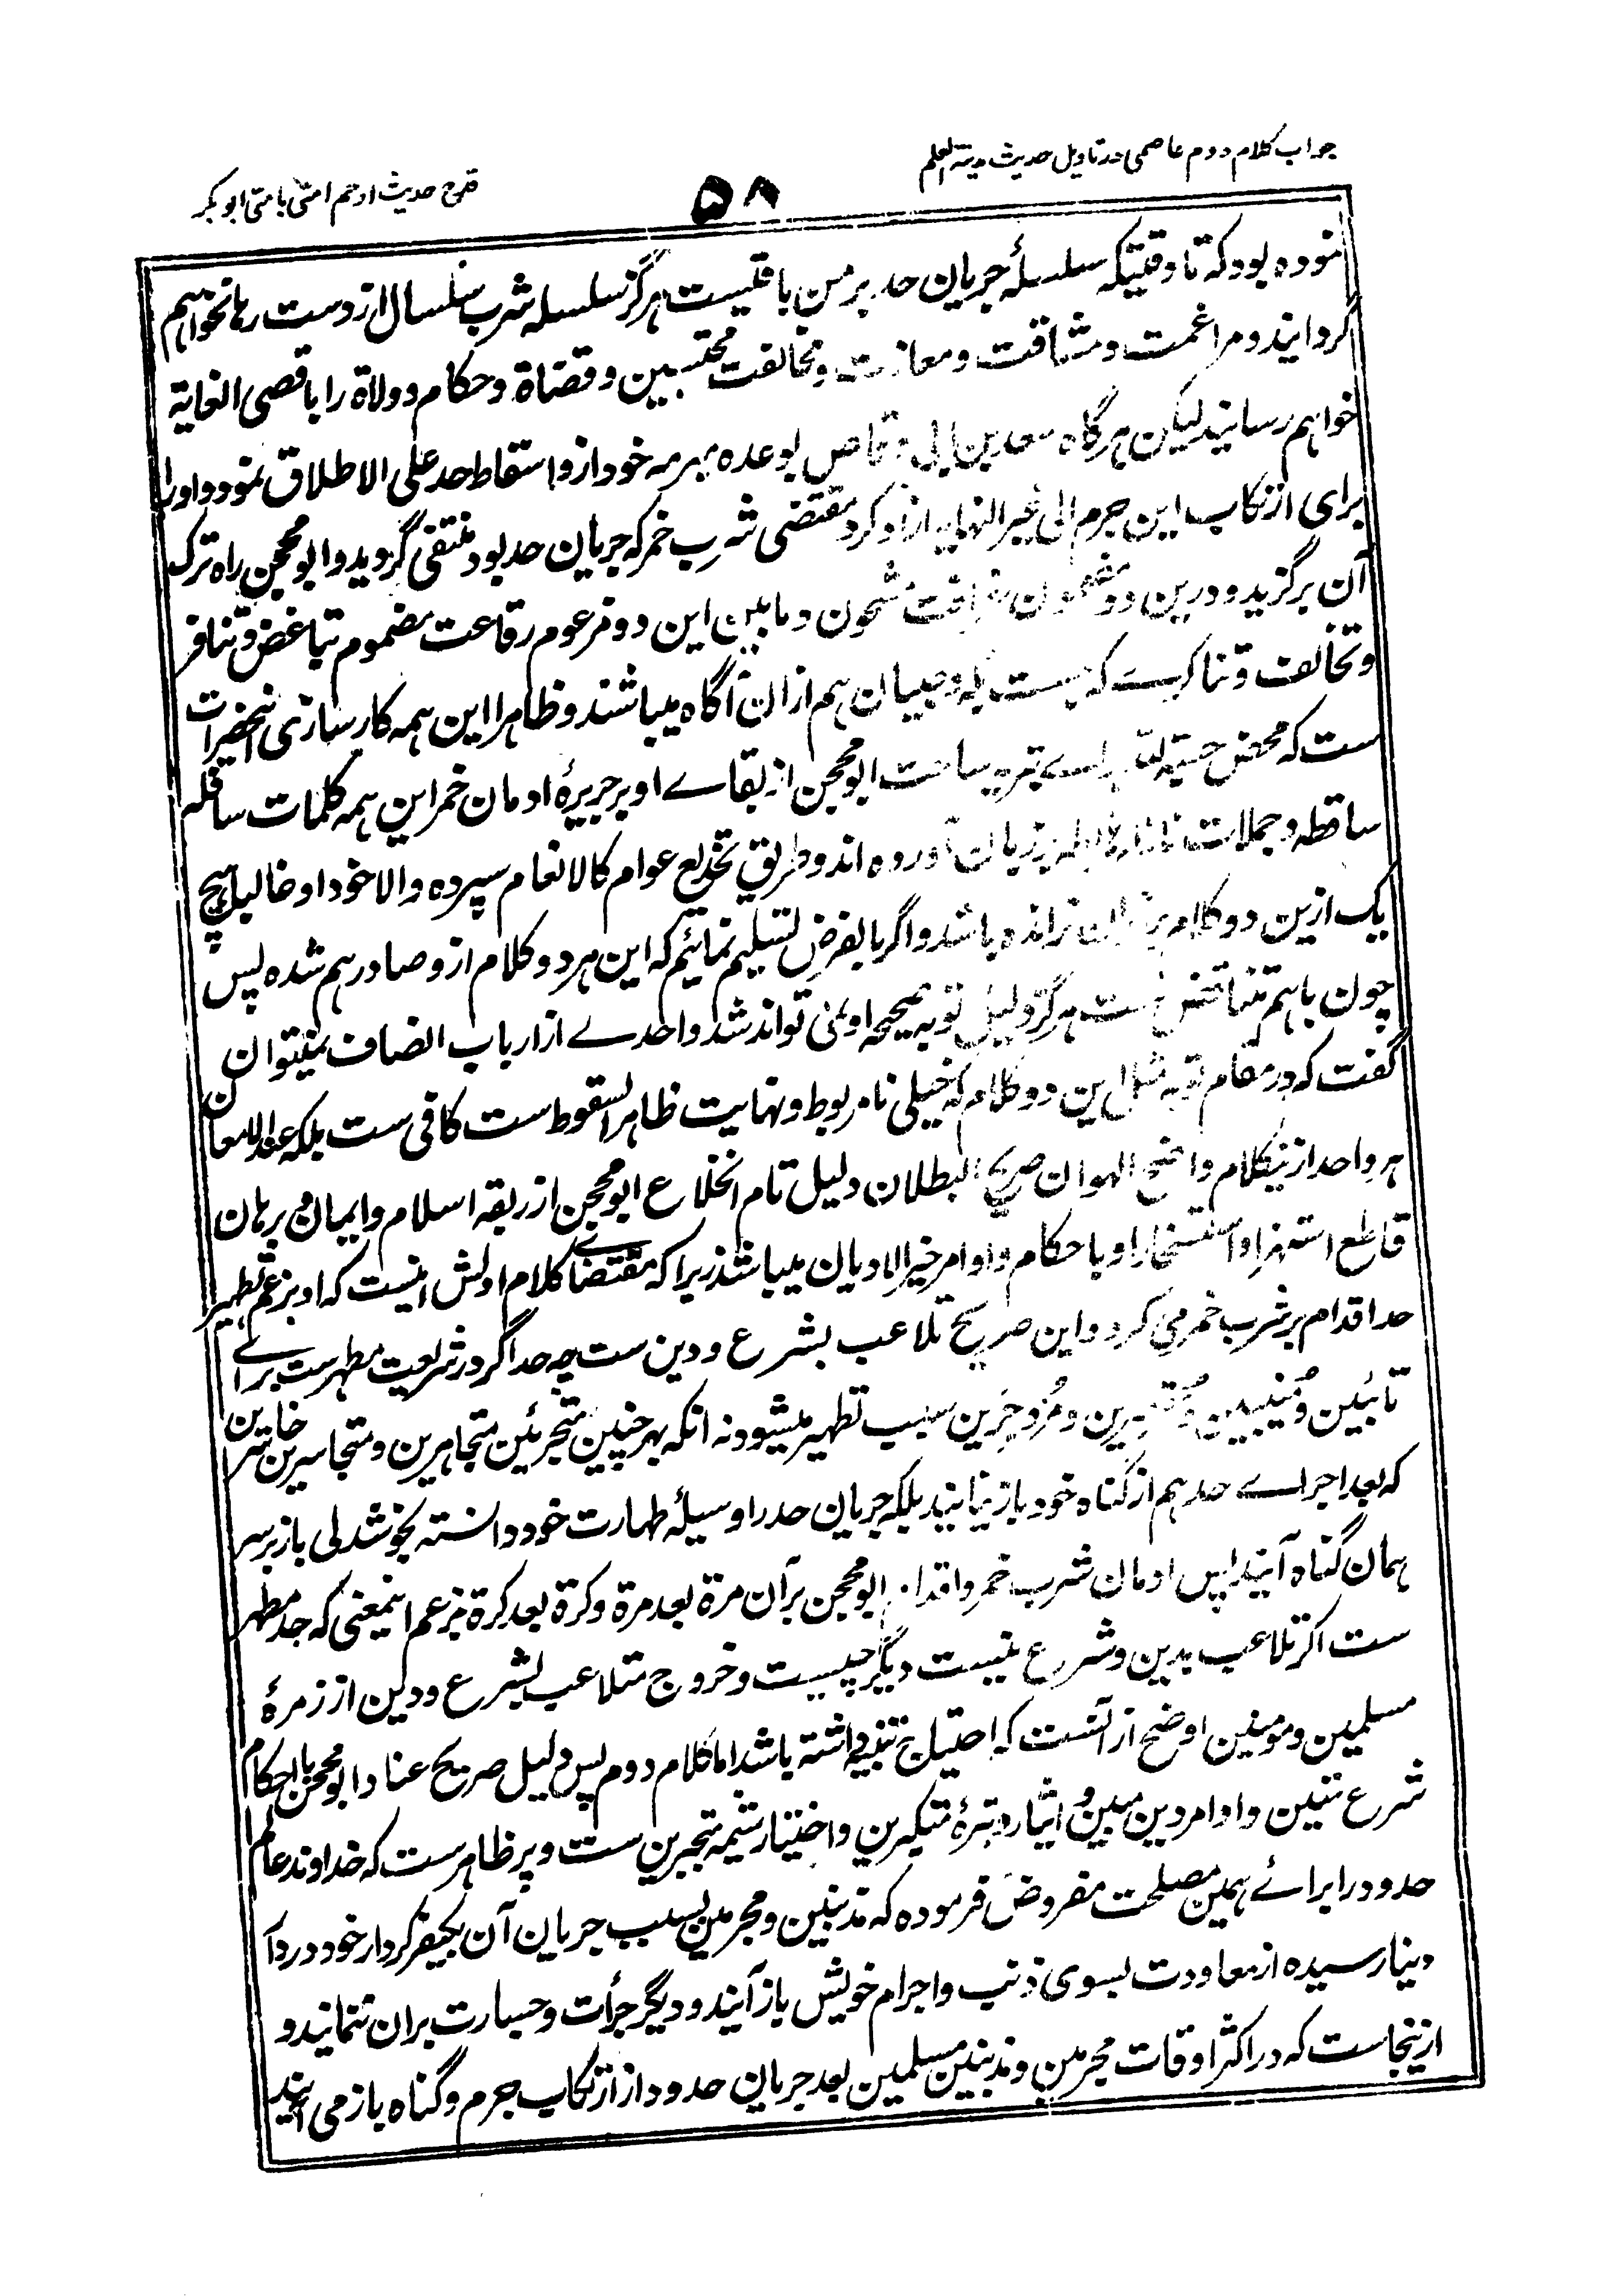 جواب کلام دوم عاصمی در تاویل حدیث مدینة العلم
۵۸
قدح حدیث ارحم امتی بامتی ابو بکر
نموده بود که تا وقتیکه سلسلۀ جریان حد بر من باقیست هرگز سلسله شرب سلسال از دست رها نخواهم
گردانید و مراغمت و مشاقت و معاندت و مخالفت محتسبین و قضاة و حکام و ولاة را باقصی الغایة
خواهم رسانید لیکن هرگاه سعد بن ابی وقاص بوعده مبرمه خود ازو اسقاط حد علی الاطلاق نمود و او را
برای ارتکاب این جرم الی غیر النهایه آزاد کرد مقتضی شرب خمر که جریان حد بود منتفی گردید و ابو محجن راه ترک
آن برگزید و درین دو مضمون رقاعت مشحون و ما بین این دو مزعوم رقاعت مضموم تباغض و تنافر
و تخالف و تناکریست که بله و صبیان هم ازان آگاه میباشند و ظاهرا این همه کارسازی آنحضرات
ست که محض حسبة لله برای تبریه ساحت ابو محجن از بقاے او بر جریرۀ ادمان خمر این همه کلمات سافله
ساقطه و جملات بر زبان آورده اند و طریق تخدیع عوام کالانعام سپرده و الا خود او غالبا هیچ
یک ازین دو کلام بر زبان نرانده باشد و اگر بالفرض تسلیم نمائیم که این هر دو کلام ازو صادر هم شده پس
چون باهم متناقض ست هرگز دلیل توبه صحیحه او نمی تواند شد و احدے از ارباب انصاف نمیتوان
گفت که در مقام توبه مثل این دو کلام که خیلی نامربوط و نهایت ظاهر السقوط ست کافی ست بلکه عند الامعان
هر واحد ازینکلام واضح الهوان صریح البطلان دلیل تام انخلاع ابو محجن از ربقه اسلام و ایمان و برهان
قاطع استهزا و استسخار او باحکام و اوامر خیر الادیان میباشد زیرا که مقتضاے کلام اولش اینست که او بزعم تطهیر
حد اقدام بر شرب خمر می کرد و این صریح تلاعب بشرع و دین ست چه حد اگر در شریعت مطهرست براے
تائبین و منیبین و مزدجرین سبب تطهیر میشود نه آنکه بهر چنین متجرئین متجاهرین و متجاسرین خاسرین
که بعد اجراے حد هم از گناه خود باز نیایند بلکه جریان حد را وسیلۀ طهارت خود دانسته بخوشدلی باز بر سر
همان گناه آیند پس ادمان شرب خمر و اقدام ابو محجن بر آن مرة بعد مرة و کرة بعد کرة بزعم اینمعنی که حد مطهر
ست اگر تلاعب بدین و شرع نیست دیگر چیست و خروج متلاعب بشرع و دین از زمرۀ
مسلمین و مومنین اوضح از آنست که احتیاج تنبیه داشته باشد اما کلام دوم پس دلیل صریح عناد ابو محجن با احکام
شرع متین و اوامر دین مبین و ایثار وتیرۀ متکبرین و اختیار شیمه متجبرین ست و پر ظاهرست که خداوند عالم
حدود را براے همین مصلحت مفروض فرموده که مذنبین و مجرمین بسبب جریان آن بکیفر کردار خود در دار
دنیا رسیده از معاودت بسوی ذنب و اجرام خویش باز آیند و دیگر جرأت و جسارت بران ننمایند و
ازینجاست که در اکثر اوقات مجرمین و مذنبین مسلمین بعد جریان حدود از ارتکاب جرم و گناه باز می آیند